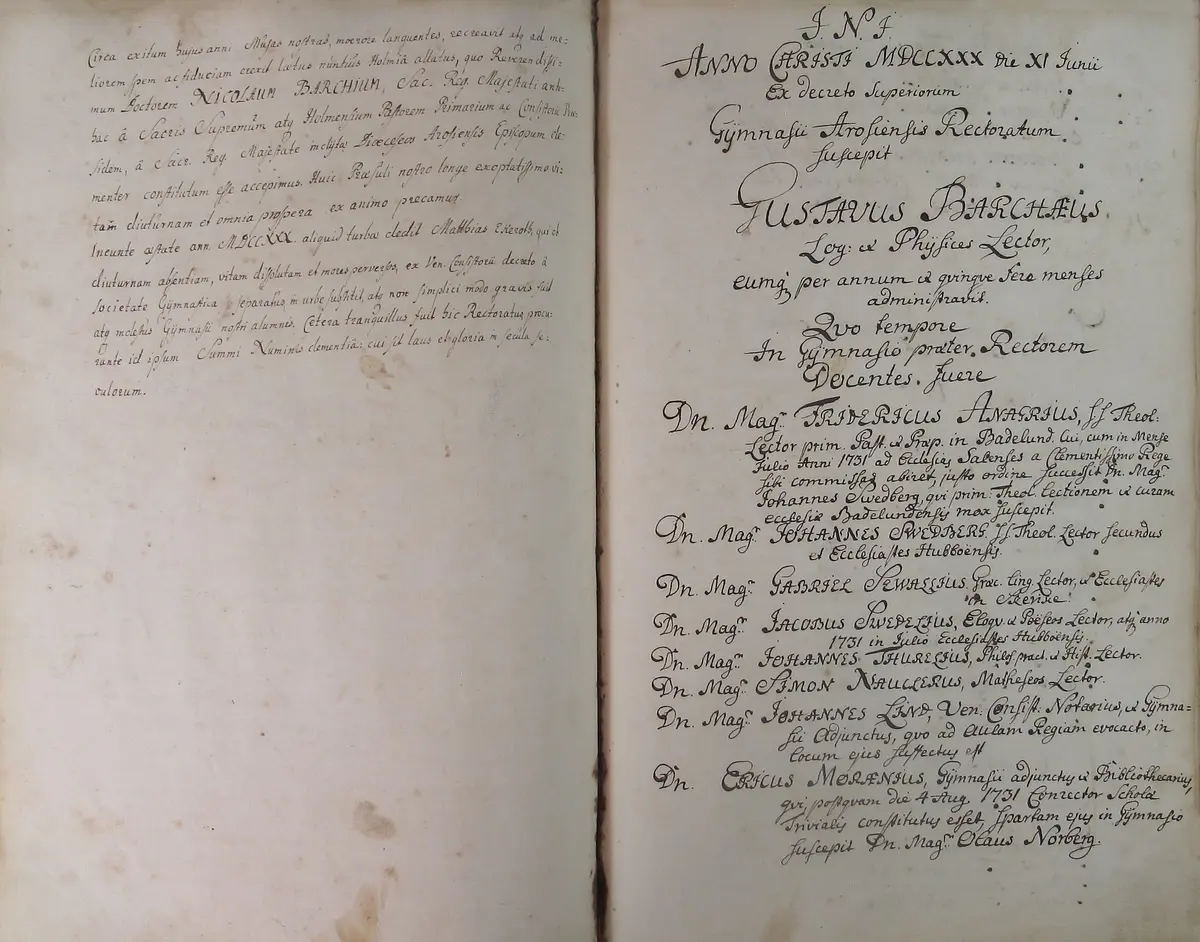 Circa exitum hujus anni Musas nostras, moerore languentes, recreavit atq ad me=
liorem spem ac fiduciam erexit laetus nuntius Holmiâ allatus, quo Reverendissi-
mum Doctorem NICOLAUM BARCHIUM, Sac. Reg. Majestati ant-
hac â Sacris Supremum atq Holmensium Pastorem Primarium ac Consistorii Prae-
sidem, â Sacr. Reg. Majestate inclytae Dioeceseos Arosiensis Episcopum cle-
menter constitutum esse accepimus. Huic Praesuli nostro longe exoptatissimo vi-
tam diuturnam et omnia prospera ex animo precamur.
Ineunte aestate ann. MDCCXXX. aliquid turbae dedit Matthias Ekeroth, qui ob
diuturnam absentiam, vitam dissolutam et mores perversos, ex Ven. Consistorii decreto â
societate Gymnastica separatus, in urbe substitit, atq non simplici modo gravis fuit
atq molestus Gymnasii nostri alumnis. Cetera tranquillus fuit hic Rectoratus, procu-
rante id ipsum Summi Numinis clementiâ: cui sit laus et gloria in secula se-
culorum.
I. N. I.
ANNO CHRISTI MDCCXXX die XI Junii
Ex decreto Superiorum
Gÿmnasii Arosiensis Rectoratum
suscepit
GUSTAVUS BARCHÆUS.
Log: & Phÿsices Lector,
eumq per annum & qvinqve fere menses
administravit.
Qvo tempore
In Gÿmnasio præter Rectorem
Docentes. fuere
Dn. Mag.r FRIDERICUS ANAGRIUS, SS Theol:
Lector prim. Past. & Præp. in Badelund. Cui, cum in Mense
Julio Anni 1731 ad Ecclesias Salenses a Clementissimo Rege
sibi commissas abiret, justo ordine successit Dn. Mag.r
Johannes Swedberg, qvi prim: Theol. Lectionem & curam
ecclesiæ Badelundensis mox suscepit.
Dn. Mag.r JOHANNES SWEDBERG. SS Theol. Lector secundus
et Ecclesiastes Hubboënsis.
Dn. Mag.r GABRIEL SEWALLIUS, Græc. Ling. Lector, & Ecclesiastes
in Skerike.
Dn. Mag.r JACOBUS SWEDELIUS, Eloqv. & Poëseos Lector, atq anno
1731 in Julio Ecclesiastes Hubboënsis.
Dn. Mag.r JOHANNES THURELIUS, Philos. pract. & Hist. Lector.
Dn. Mag.r SIMON NAUCLERUS, Matheseos Lector.
Dn. Mag.r JOHANNES LIND, Ven. Consist. Notarius, & Gÿmna=
sii Adjunctus, qvo ad Aulam Regiam evocato, in
locum ejus suffectus est
Dn. ERICUS MORÆNIUS, Gÿmnasii adjunctus & Bibliothecarius,
qvi, postqvam die 4 Aug. 1731 Conrector Scholæ
Trivialis constitutus esset, Spartam ejus in Gÿmnasio
suscepit Dn. Mag.r Olaus Norberg.